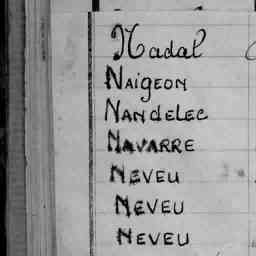 Nadal
NAIGEON
NANDELEC
NAVARRE
NEVEU
NEVEU
NEVEU